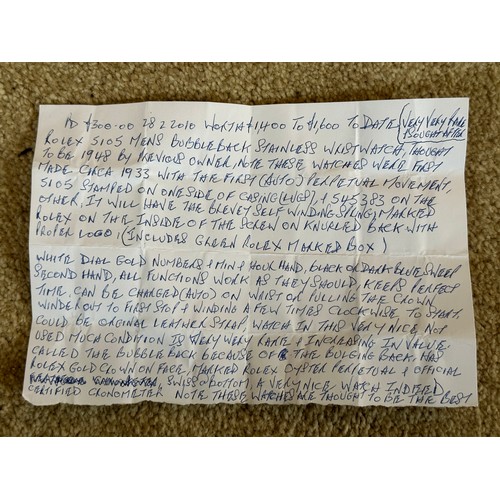 PD £300-00 28 2 2010 WORTH £1,400 TO £1,600 TO DATE (VERY VERY RARE
BOUGHT AFTER
ROLEX 5105 MENS BUBBLEBACK STAINLESS WRISTWATCH, THOUGHT
TO BE 1948 BY PREVIOUS OWNER, NOTE THESE WATCHES WERE FIRST
MADE CIRCA 1933 WITH THE FIRST (AUTO) PERPETUAL MOVEMENT,
5105 STAMPED ON ONE SIDE OF CASING (LUGS), & 545383 ON THE
OTHER, IT WILL HAVE THE BREVET SELF WINDING SPRING, MARKED
ROLEX ON THE INSIDE OF THE SCREW ON KNURLED BACK WITH
PROPER LOGO, (INCLUDES GREEN ROLEX MARKED BOX)
WHITE DIAL GOLD NUMBERS & MIN & HOUR HAND, BLACK OR DARK BLUE SWEEP
SECOND HAND, ALL FUNCTIONS WORK AS THEY SHOULD KEEPS PERFECT
TIME, CAN BE CHARGED (AUTO) ON WRIST OR PULLING THE CROWN
WINDER OUT TO FIRST STOP & WINDING A FEW TIMES CLOCKWISE, TO START.
COULD BE ORGINAL LEATHER STRAP WATCH IN THIS VERY NICE NOT
USED MUCH CONDITION IS VERY VERY RARE & INCREASING IN VALUE.
CALLED THE BUBBLE BACK BECAUSE OF THE BULGING BACK, HAS
ROLEX GOLD CROWN ON FACE, MARKED ROLEX OYSTER PERPETUAL & OFFICIAL
SWISS @ BOTTOM, A VERY NICE WATCH INDEED,
CERTIFIED CRONOMETER NOTE THESE WATCHES ARE THOUGHT TO BE THE BEST